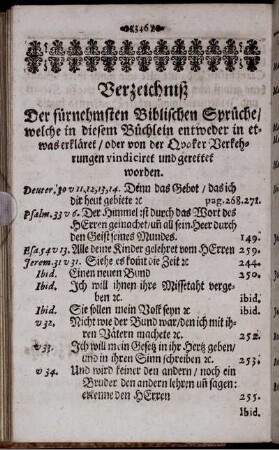 (346)
Verzeichniß
Der fürnehmsten Biblischen Sprüche/
welche in diesem Büchlein entweder in et-
was erkläret / oder von der Qvaker Verkeh-
rungen vindiciret und gerettet
worden.
Deuter. 30 v 11,12,13,14. Denn das Gebot / das ich
dir heut gebiete ꝛc pag.268.271.
Psalm. 33 v 6. Der Himmel ist durch das Wort des
HErren gemachet / uñ all sein Heer durch
den Geist seines Mundes. 149.
Esa. 54 v 13. Alle deine Kinder gelehret vom HErren 259.
Jerem. 31 v 31. Siehe es komt die Zeit ꝛc 244.
Ibid. Einen neuen Bund 250.
Ibid. Ich will ihnen ihre Missetaht verge-
ben ꝛc. ibid.
Ibid. Sie sollen mein Volk seyn ꝛc ibid.
v 32. Nicht wie der Bund war / den ich mit ih-
ren Vätern machete ꝛc. 252.
v 33. Ich will mein Gesetz in ihr Hertz geben /
und in ihren Sinn schreiben ꝛc. 253.
v 34. Und wird keiner den andern / noch ein
Bruder den andern lehren uñ sagen:
erkenne den HErren 255.
Ibid.